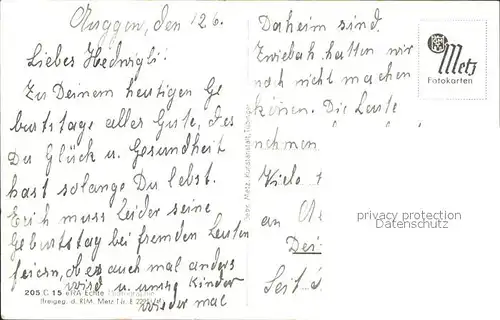 Auggen, den 12.6.
Liebes Hedwigli!
Zu Deinem heutigen Ge
burtstage alles Gute, das
Du Glück u. Gesundheit
hast solange Du lebst.
Erich muss leider seine
Geburtstag bei fremden Leuten
feiern, ob es auch mal anders
wird u. unsre Kinder
wieder mal
205 C 15 ERA Echte
(freigeg. d. RLM, Metz Tr. B
Gebr. Metz, Kunstanstalt, Tübingen
Daheim sind.
Zwieback hatten wir
noch nicht machen
können. Die Leute
nehmen
Viele
an
Dei
Seit
Metz
Fotokarten
privacy protection
Datenschutz